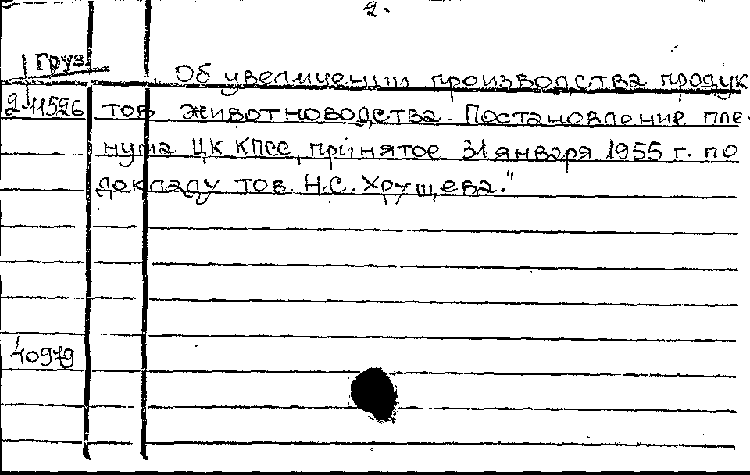 2.
1 Груз
Об увеличении производства продук
2 11526 тов животноводства. Постановление пле-
нума ЦК КПСС, принятое 31 января 1955 г. по
докладу тов. Н.С. Хрущева."
40979